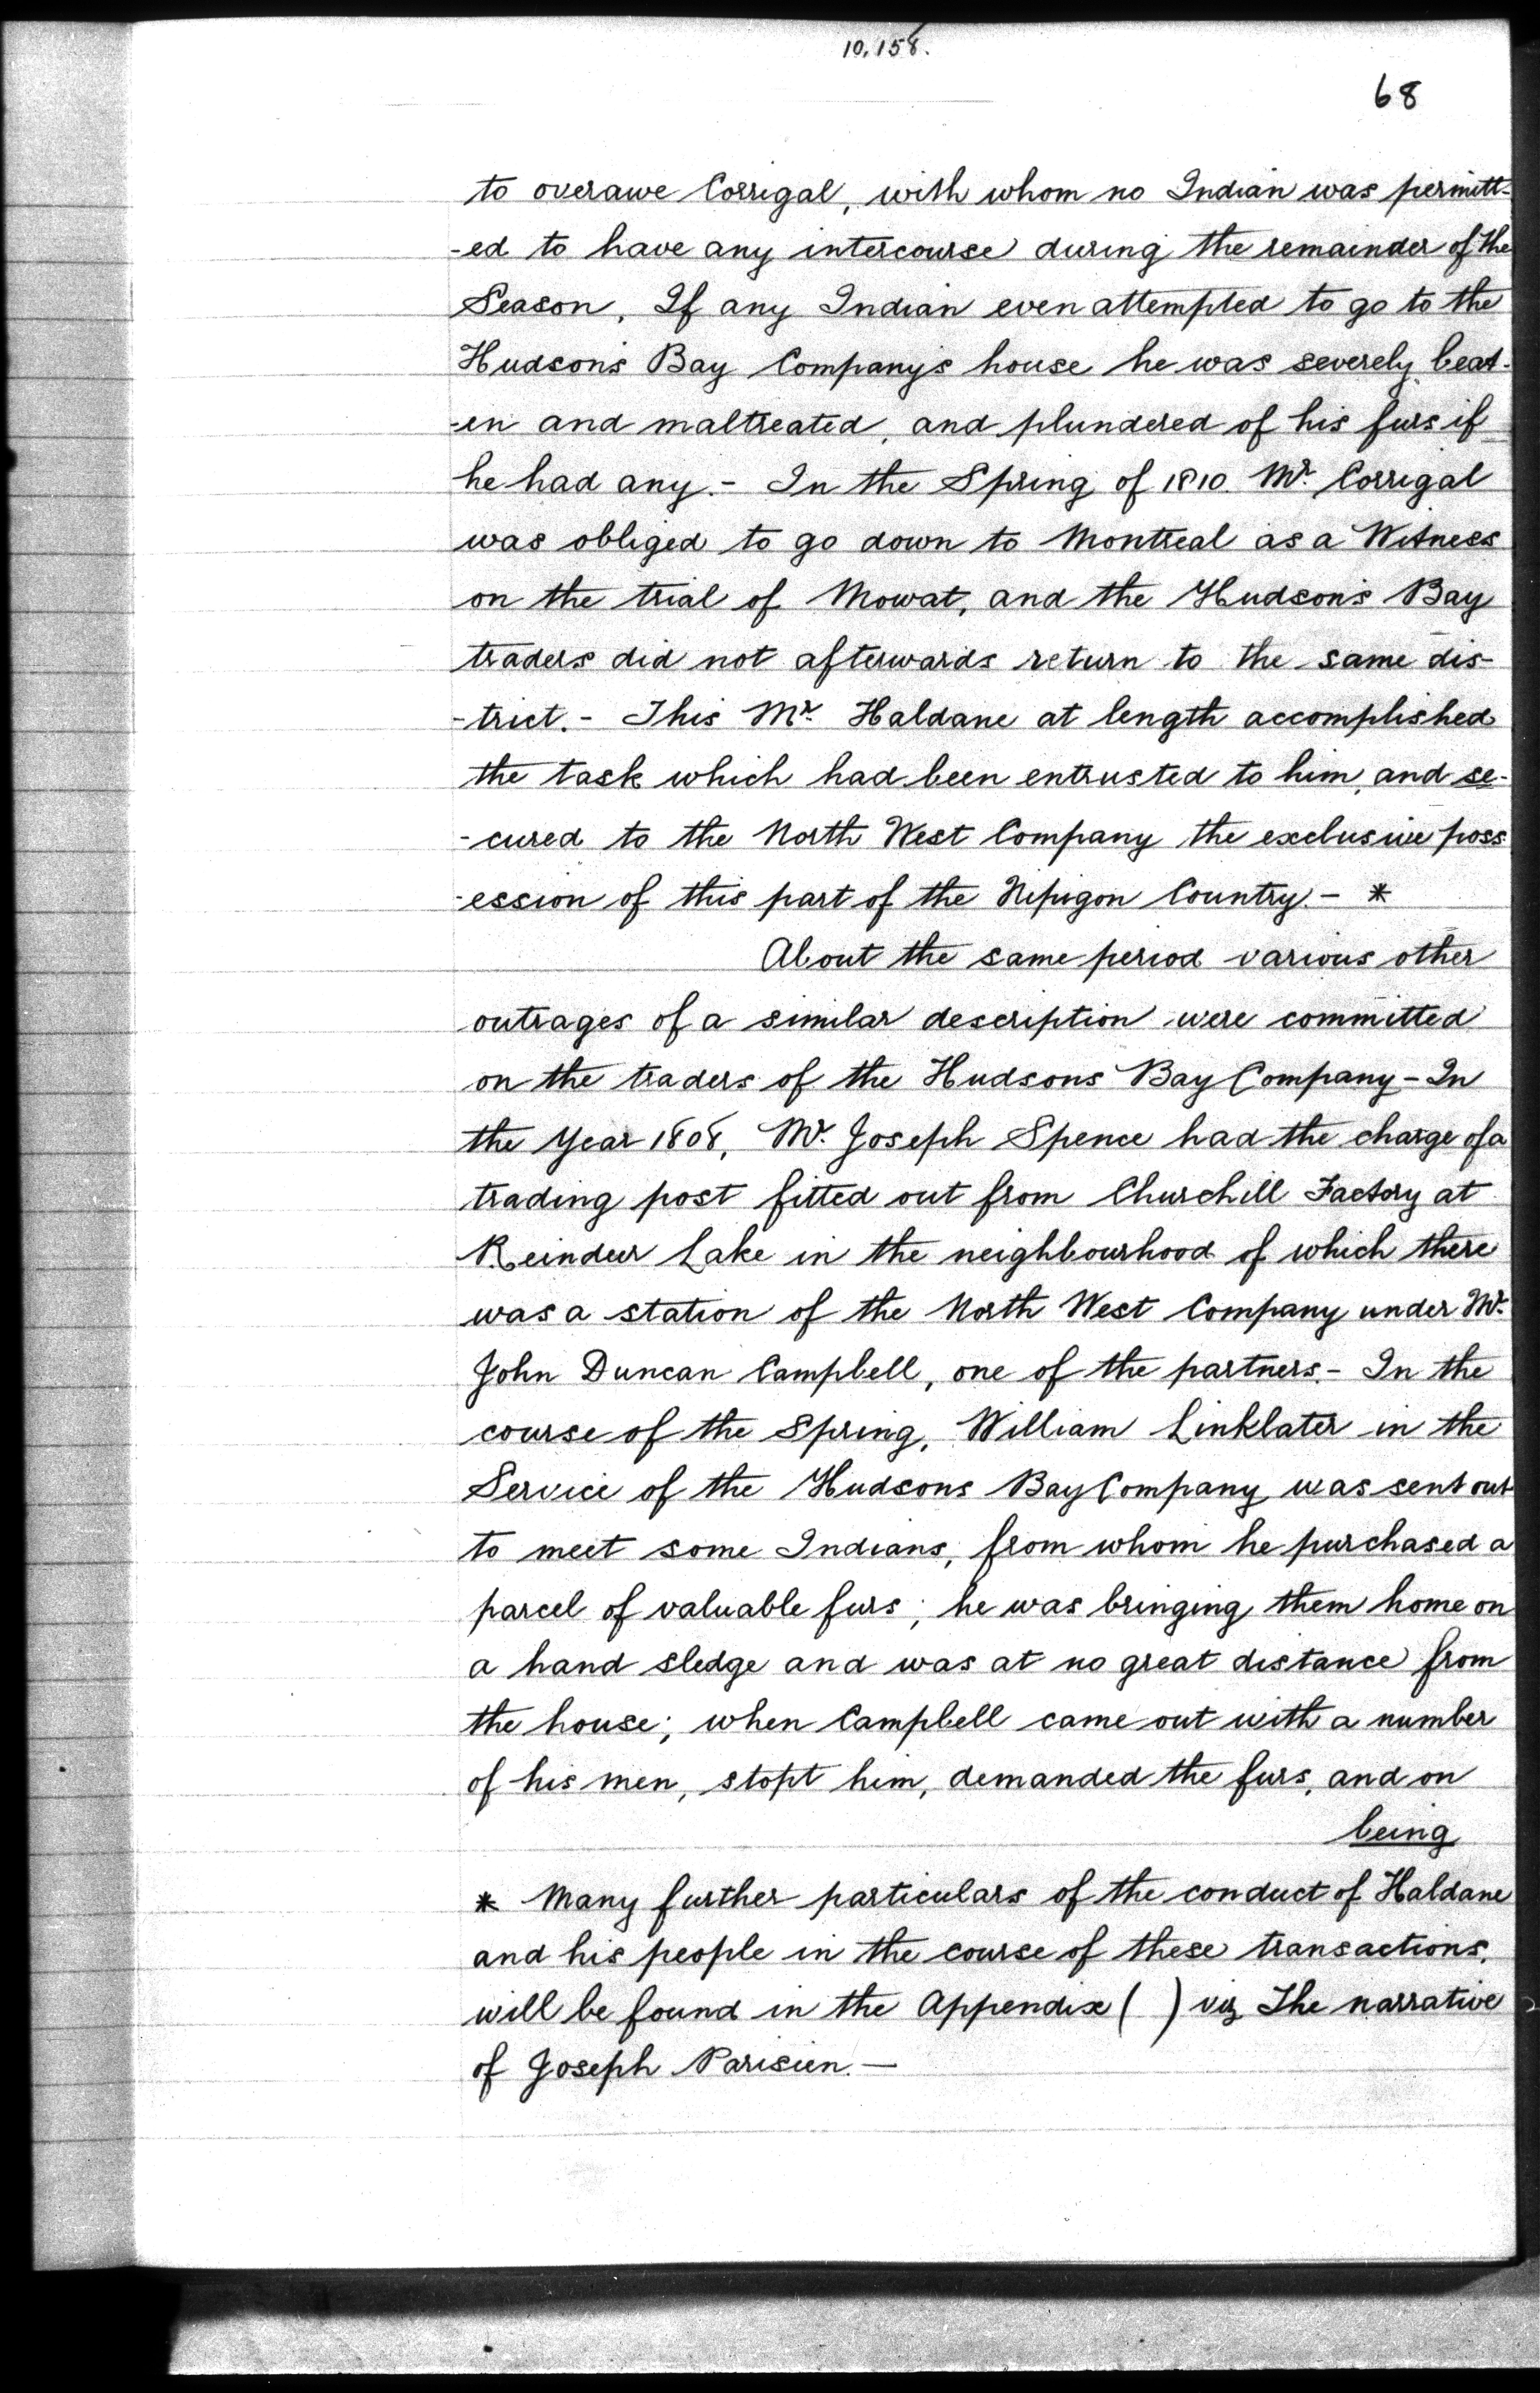 10,158.
68
to overawe Corrigal, with whom no Indian was permitt-
-ed to have any intercourse during the remainder of the
Season. If any Indian even attempted to go to the
Hudson's Bay Company's house he was severely beat-
-en and maltreated, and plundered of his furs if
he had any.- In the Spring of 1810. Mr. Corrigal
was obliged to go down to Montreal as a Witness
on the trial of Mowat, and the Hudson's Bay
traders did not afterwards return to the same dis-
-trict.- This Mr. Haldane at length accomplished
the task which had been entrusted to him, and se-
-cured to the North West Company the exclusive poss
-ession of this part of the Nipigon Country.- *
About the same period various other
outrages of a similar description were committed
on the traders of the Hudsons Bay Company - In
the Year 1808, Mr. Joseph Spence had the charge of a
trading post fitted out from Churchill Factory at
Reindeer Lake in the neighbourhood of which there
was a station of the North West Company under Mr.
John Duncan Campbell, one of the partners.- In the
course of the Spring, William Linklater in the
Service of the Hudsons Bay Company was sent out
to meet some Indians, from whom he purchased a
parcel of valuable furs; he was bringing them home on
a hand sledge and was at no great distance from
the house; when Campbell came out with a number
of his men, stopt him, demanded the furs, and on
being
* Many further particulars of the conduct of Haldane
and his people in the course of these transactions,
will be found in the Appendix ( ) viz The narrative
of Joseph Parisien.-